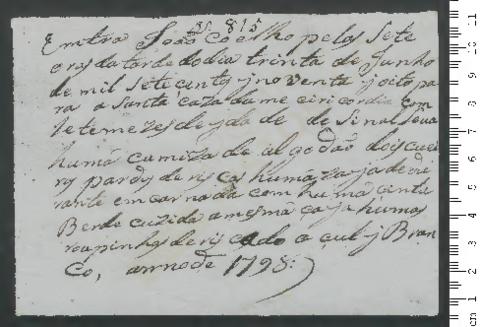 35 815
Emtra João Coelho pelas sete
oras da tarde do dia trinta de Junho
de mil sete centos y noventa y oito pa
ra a Santa Caza da me ciricordia com
sete mezes de ydade de sinal leva
huma camiza de algodão dois cuei
ros pardos de riscas huma
rante emcarnada com huma
Berde cuzida a mesma huns
roupinhos de riscado a zul y Bran
Co, anno de 1798.